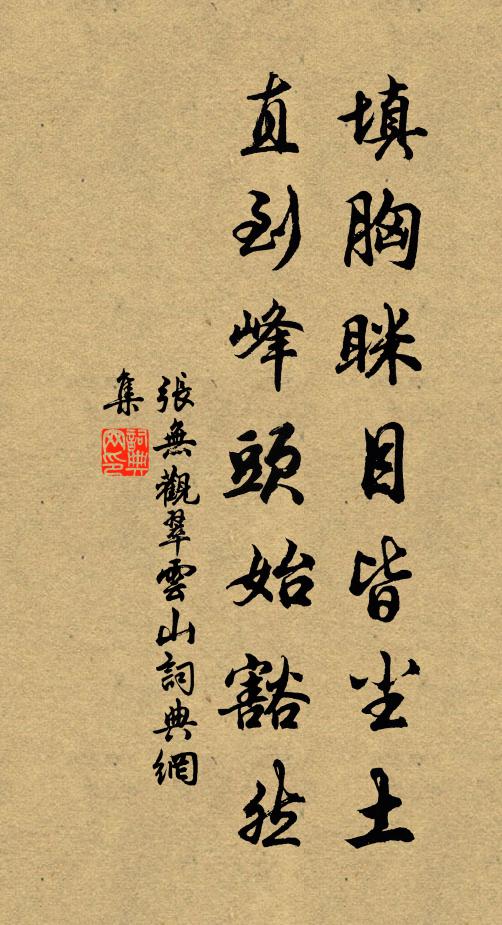 填胸眯目皆尘土
直到峰頭始豁然
張無觀翠雲山詞典網
集
詞典
网印